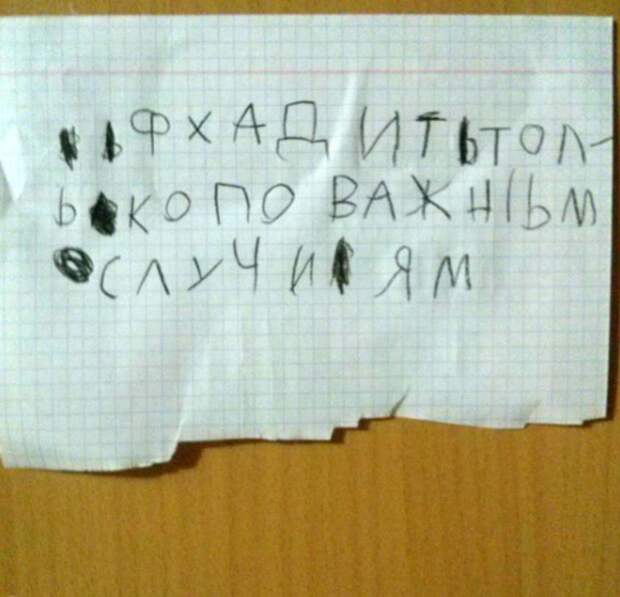 ФХАДИТЬТОЛ-
ЬКОПОВАЖНIЬМ
СЛУЧИЯМ